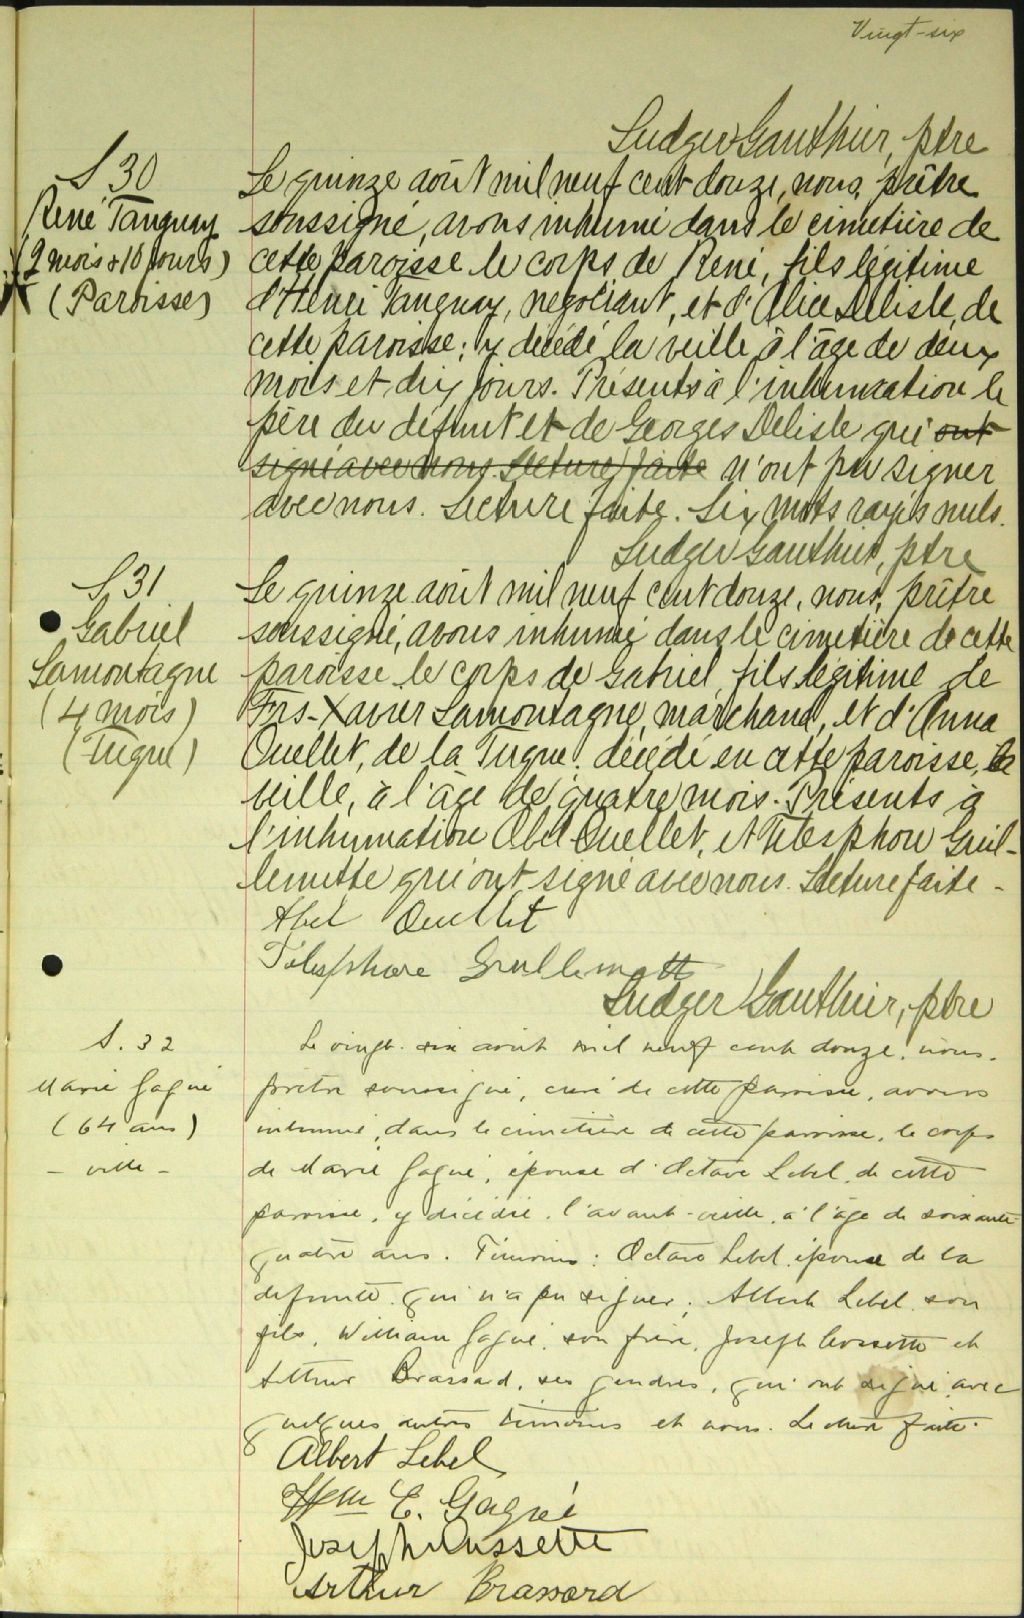 Vingt-six
Ludger Gauthier, ptre
S 30
René Tanguay
(2 mois & 10 jours)
(Paroisse)
Le quinze août mil neuf cent douze, nous, prêtre
soussigné, avons inhumé dans le cimetière de
cette paroisse le corps de René, fils légitime
d'Henri Tanguay, négociant, et d'Alice Delisle, de
cette paroisse; y décédé la veille à l'âge de deux
mois et dix jours. Présents à l'inhumation le
père du défunt et de Georges Delisle qui ont
signé avec nous Lecture faite n'ont pu signer
avec nous. Lecture faite. Six mots rayés nuls.
Ludger Gauthier, ptre
S 31
Gabriel
Lamontagne
(4 mois)
(Tuque)
Le quinze août mil neuf cent douze, nous, prêtre
soussigné, avons inhumé dans le cimetière de cette
paroisse le corps de Gabriel, fils légitime de
Frs-Xavier Lamontagne, marchand, et d'Anna
Ouellet, de la Tuque; décédé en cette paroisse, la
veille, à l'âge de quatre mois. Présents à
l'inhumation Abel Ouellet, et Télesphore Guil-
lemette qui ont signé avec nous. Lecture faite -
Abel Ouellet
Télesphore Guillemette
Ludger Gauthier, ptre
S. 32
Marie Gagné
(64 ans)
- ville -
Le vingt-six août mil neuf cent douze, nous,
prêtre soussigné, curé de cette paroisse, avons
inhumé, dans le cimetière de cette paroisse, le corps
de Marie Gagné, épouse d'Octave Lebel, de cette
paroisse, y décédée, l'avant-veille, à l'âge de soixante-
quatre ans. Témoins: Octave Lebel, époux de la
defunte, qui n'a pu signer; Albert Lebel, son
fils, William Gagné, son frère, Joseph Cossette et
Arthur Brassard, ses gendres, qui ont signé avec
quelques autres témoins et nous. Lecture faite.
Albert Lebel
Wm E. Gagné
Joseph Cossette
Arthur Brassard